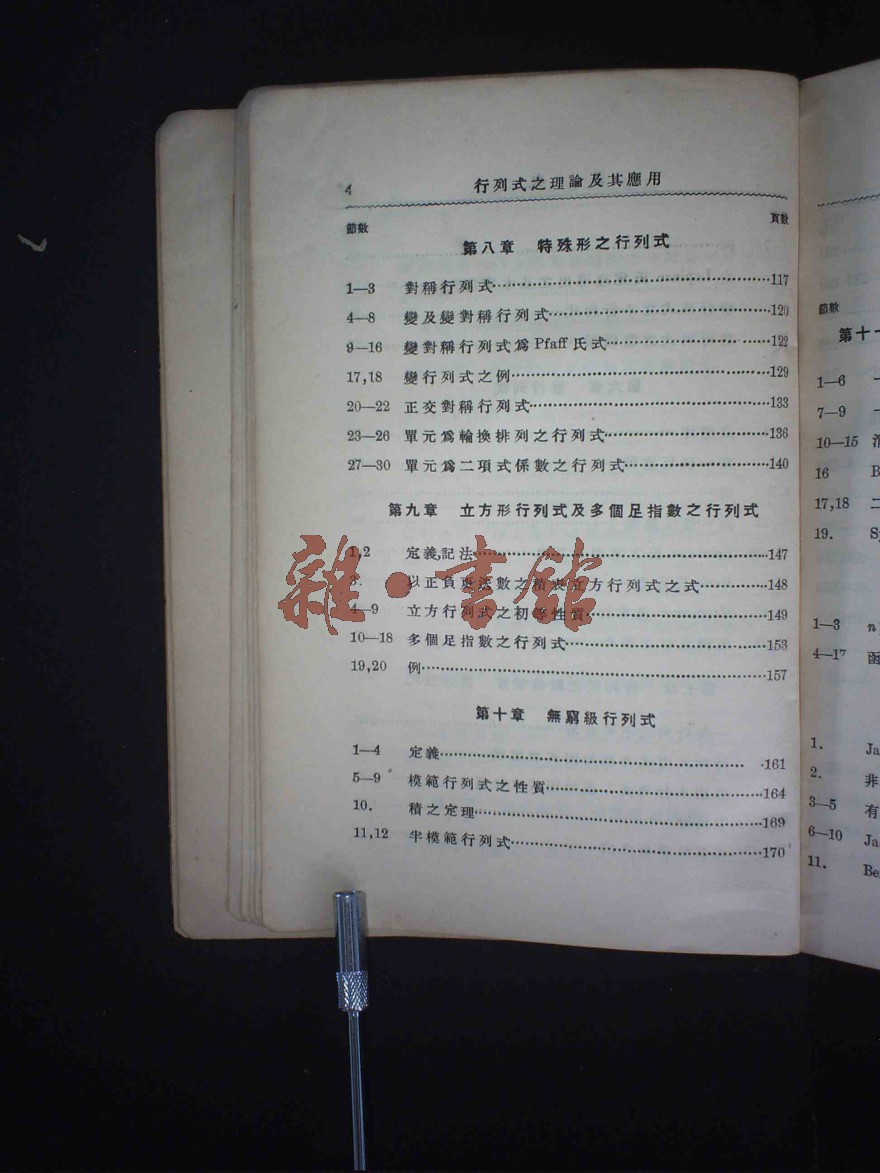 4 行列式之理論及其應用
節數 頁數
第八章 特殊形之行列式
1—3 對稱行列式 117
4—8 變及變對稱行列式 120
9—16 變對稱行列式爲Pfaff氏式 122
17,18 變行列式之例 129
20—22 正交對稱行列式 133
23—26 單元爲輪換排列之行列式 136
27—30 單元爲二項式係數之行列式 140
第九章 立方形行列式及多個足指數之行列式
1,2 定義記法 147
3. 以正負更迭數之積表立方行列式之式 148
4—9 立方行列式之初等性質 149
10—18 多個足指數之行列式 153
19,20 例 157
第十章 無窮級行列式
1—4 定義 161
5—9 模範行列式之性質 164
10. 積之定理 169
11,12 半模範行列式 170
雜·書館
節數
第十
1—6
7—9
10—15
16 B
17,18 二
19. Sy
1—3 n
4—17 函
1. Ja
2. 非
3—5 有
6—10 Ja
11. Be